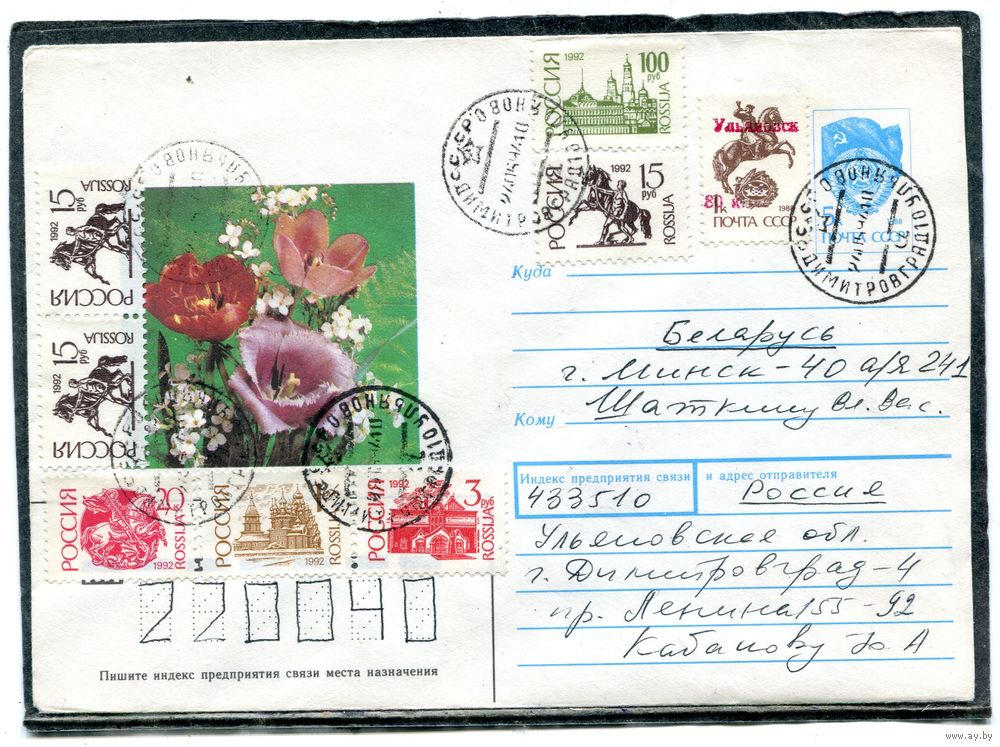 РОССИЯ 1992 100 руб ROSSIJA
РОССИЯ 1992 15 руб ROSSIJA
Ульяновск
80 к.
1к 1988
ПОЧТА СССР
5к 1988
ПОЧТА СССР
СССР ДИМИТРОВГРАД
РОССИЯ 1992 15 руб ROSSIJA
РОССИЯ 1992 15 руб ROSSIJA
РОССИЯ 20 1992 ROSSIJA
РОССИЯ 1992 ROSSIJA
РОССИЯ 1992 3 руб ROSSIJA
Куда
Беларусь
г. Минск-40 а/я 241
Кому Шаткину Вл. Вас.
Индекс предприятия связи и адрес отправителя
433510 Россия
Ульяновская обл.
г. Димитровград-4
пр. Ленина 155-92
Кабанову Ю. А
220040
Пишите индекс предприятия связи места назначения
www.ay.by